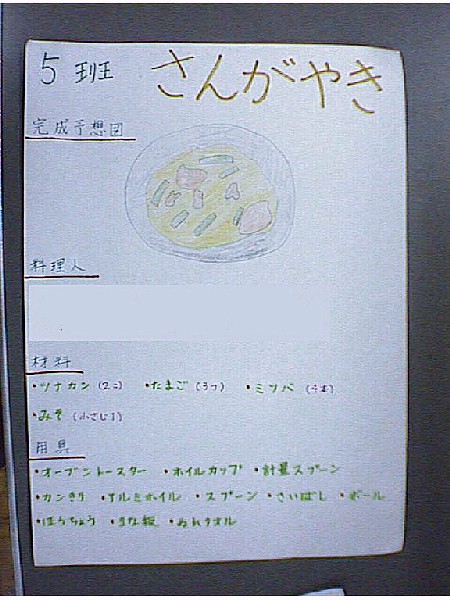 5班 さんがやき
完成予想図
料理人
材料
・ツナカン(2コ) ・たまご(3コ) ・ミツバ(4本)
・みそ(小さじ1)
用具
・オーブントースター ・ホイルカップ ・計量スプーン
・カンきり ・アルミホイル ・スプーン ・さいばし ・ボール
・ほうちょう ・まな板 ・ぬれタオル